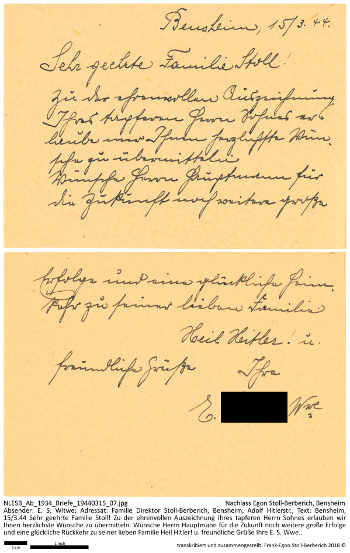 Bensheim, 15/3.44.
Sehr geehrte Familie Stoll!
Zu der ehrenvollen Auszeichnung
Ihres tapferen Herrn Sohnes er-
laube mir Ihnen herzlichste Wün-
sche zu übermitteln.
Wünsche Herrn Hauptmann für
die Zukunft noch weitere große
Erfolge und eine glückliche Heim-
kehr zu seiner lieben Familie
Heil Hitler! u.
freundliche Grüße Ihre
E. Wwe
NLESB_Ab_1934_Briefe_19440315_07.jpg Nachlass Egon Stoll-Berberich, Bensheim
Absender: E. S. Witwe; Adressat: Familie Direktor Stoll-Berberich, Bensheim, Adolf Hitlerstr.; Text: Bensheim,
15/3.44 Sehr geehrte Familie Stoll! Zu der ehrenvollen Auszeichnung Ihres tapferen Herrn Sohnes erlauben wir
Ihnen herzlichste Wünsche zu übermitteln. Wünsche Herrn Hauptmann für die Zukunft noch weitere große Erfolge
und eine glückliche Rückkehr zu seiner lieben Familie Heil Hitler! u. freundliche Grüße Ihre E. S. Wwe..
1 cm 1 inch transkribiert und zusammengestellt: Frank-Egon Stoll-Berberich 2018 ©